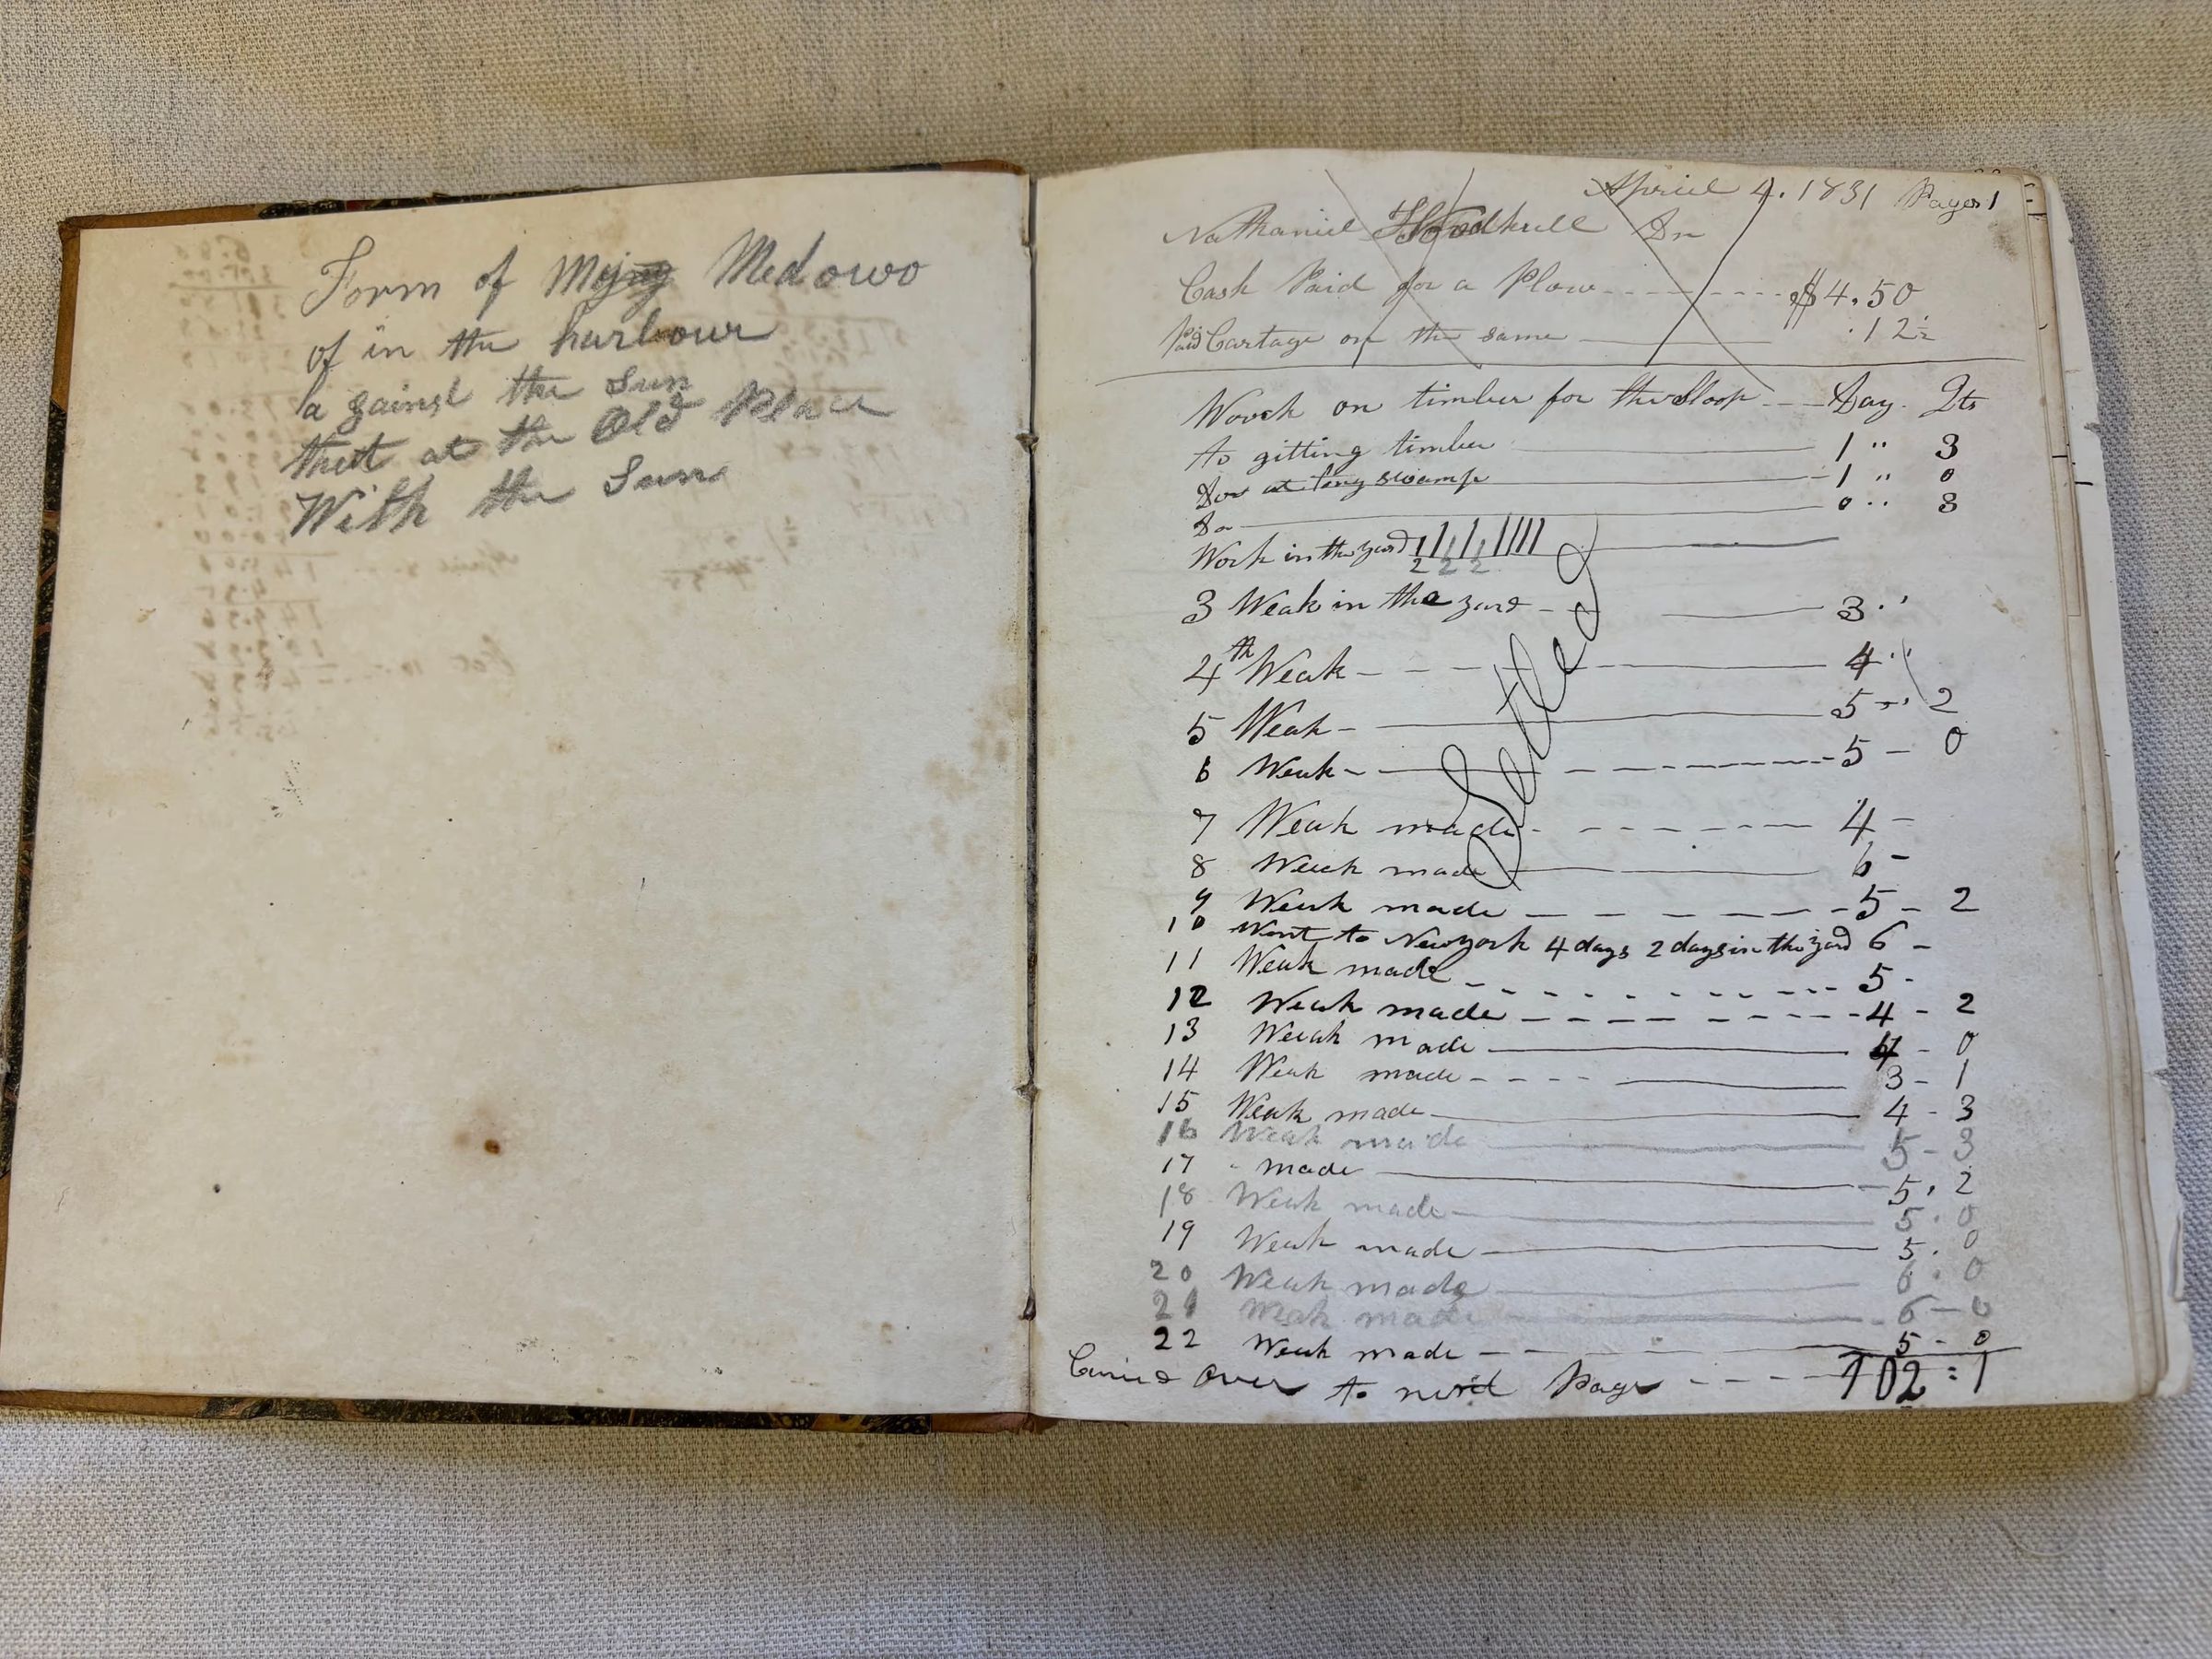 Form of Medowo
of in the harbour
a gainst the Sun
that at the Old Place
With the Sun
Apriel 4. 1831 Page 1
Nathaniel Woodhull Dr
Cash Paid for a Plow $4.50
Paid Cartage on the same .12½
Worck on timber for the Sloop Day. Qts
to gitting timber 1 " 3
Do at long swamp 1 " 0
Do 0 " 3
Work in the yard
2 2 2
3 Weak in the yard 3
4th Weak 4
5 Weak 5 2
6 Weak 5 - 0
7 Weak made 4 -
8 Weak made 6 -
9 Weak made 5 - 2
10 Went to Newyork 4 days 2 days in the yard 6 -
11 Weak made 5 -
12 Weak made 4 - 2
13 Weak made 4 - 0
14 Weak made 3 - 1
15 Weak made 4 - 3
16 Weak made 5 - 3
17 " made 5 , 2
18 Weak made 5 . 0
19 Weak made 5 . 0
20 Weak made 6 . 0
21 Weak made 6 - 0
22 Weak made 5 - 0
Carried Over to next Page 102 : 1
Settled